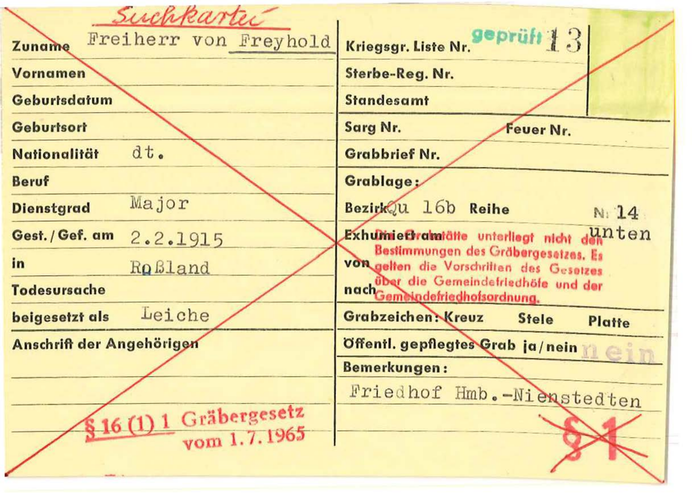 Suchkartei
Zuname Freiherr von Freyhold
Vornamen
Geburtsdatum
Geburtsort
Nationalität dt.
Beruf
Dienstgrad Major
Gest. / Gef. am 2.2.1915
in Roßland
Todesursache
beigesetzt als Leiche
Anschrift der Angehörigen
§ 16 (1) 1 Gräbergesetz
vom 1.7.1965
Kriegsgr. Liste Nr. geprüft 13
Sterbe-Reg. Nr.
Standesamt
Sarg Nr. Feuer Nr.
Grabbrief Nr.
Grablage:
Bezirk Qu 16b Reihe Nr. 14
unten
Exhumiert am
von
nach
Die Grabstätte unterliegt nicht den
Bestimmungen des Gräbergesetzes. Es
gelten die Vorschriften des Gesetzes
über die Gemeindefriedhöfe und der
Gemeindefriedhofsordnung.
Grabzeichen: Kreuz Stele Platte
Öffentl. gepflegtes Grab ja/nein nein
Bemerkungen:
Friedhof Hmb.-Nienstedten
§ 1